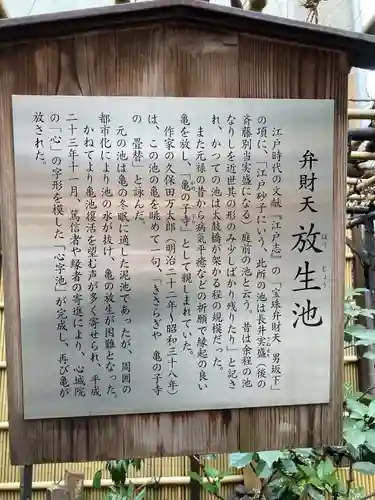 弁財天 放生池
ほうじょう
江戸時代の文献『江戸志』の「宝珠弁財天 男坂下」
の項に、「江戸砂子にいう、此所の池は長井実盛(後の
さねもり
斉藤別当実盛になる)庭前の池と云う。昔は余程の池
なりしを近世其の形のみ少しばかり残りたり」と記さ
れ、かつての池は太鼓橋が架かる程の規模だった。
また元禄の昔から病気平癒などの祈願で縁起の良い
亀を放し、「亀の子寺」として親しまれていた。
作家の久保田万太郎(明治二十二年〜昭和三十八年)
は、この池の亀を眺めて一句、「きさらぎや 亀の子寺
の 畳替」と詠んだ。
元の池は亀の冬眠に適した泥池であったが、周囲の
都市化により池の水が抜け、亀の放生が困難となった。
かねてより亀池復活を望む声が多く寄せられ、平成
二十三年十一月、篤信者や縁者の寄進により、心城院
の「心」の字形を模した「心字池」が完成し、再び亀が
放された。